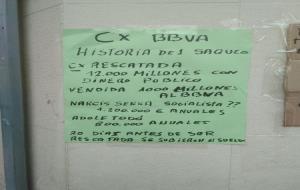 CX BBVA
HISTORIA DE 1 SAQUEO
CX RESCATADA
- 12.000 MILLONES CON
DINERO PUBLICO
VENDIDA 1000 MILLONES
AL BBVA
NARCIS SERRA SOCIALISTA ??
1.200.000 € ANUALES
ADOLF TODO
800.000 ANUALES
20 DIAS ANTES DE SER
RESCATADA SE SUBIERON EL SUELDO